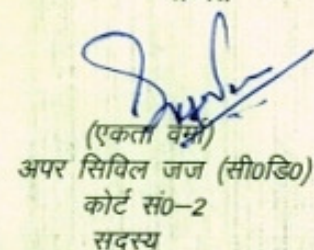 (एकता वर्मा)
अपर सिविल जज (सी0डि0)
कोर्ट सं0–2
सदस्य